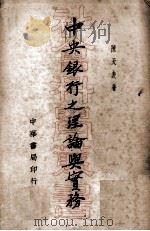 陳天表著
中央銀行之理論與實務
中華書局印行